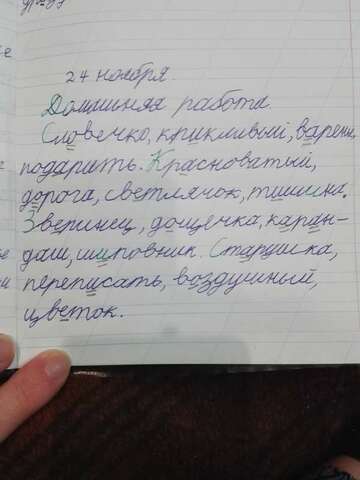 24 ноября.
Домашняя работа.
Словечко, крикливый, варень
подарить. Красноватый,
дорога, светлячок, тишина.
Зверинец, дощечка, каран-
даш, шиповник. Старушка,
переписать, воздушный,
цветок.